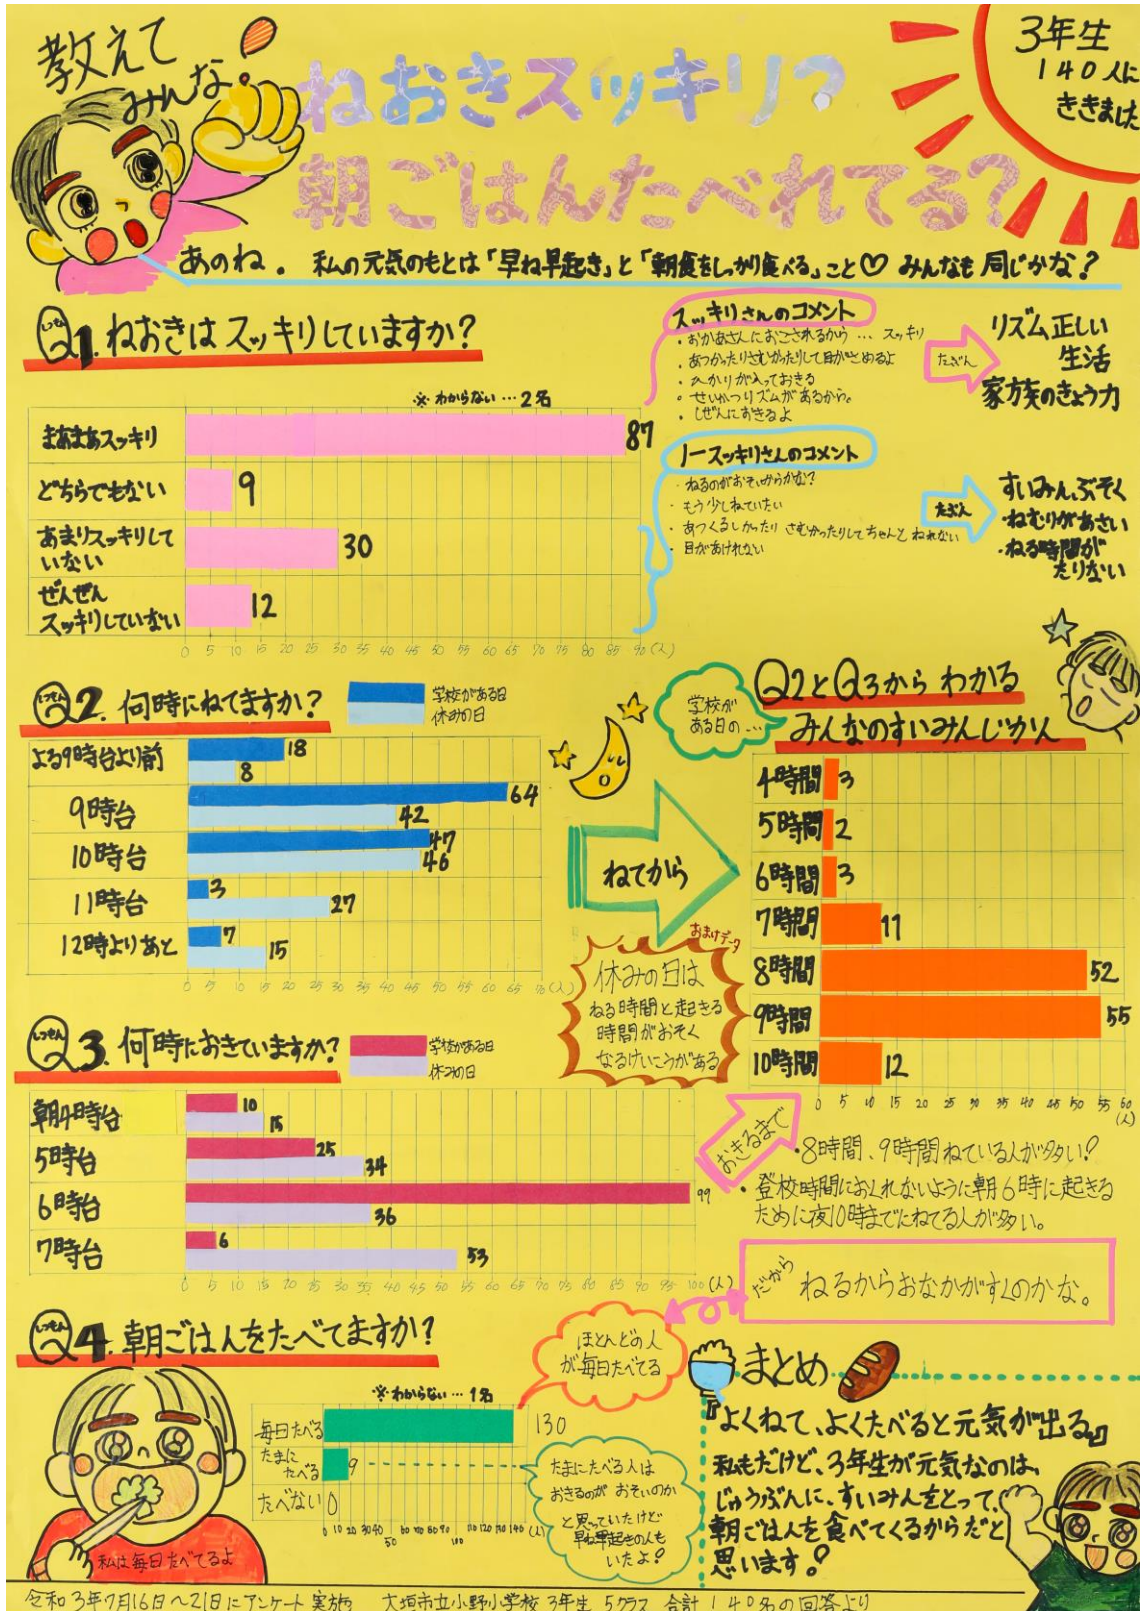 教えて
みんな!
ねおきスッキリ?
朝ごはんたべれてる?
3年生
140人に
ききました
あのね。 私の元気のもとは「早ね早起き」と「朝食をしっかり食べる」こと♡ みんなも同じかな?
しつもん
Q1. ねおきは スッキリしていますか?
※わからない…2名
まあまあスッキリ 87
どちらでもない 9
あまりスッキリして
いない 30
ぜんぜん
スッキリしていない 12
0 5 10 15 20 25 30 35 40 45 50 55 60 65 70 75 80 85 90 (人)
スッキリさんのコメント
・おかあさんにおこされるから … スッキリ
・あつかったりさむかったりして目がさめるよ
・ひかりが入っておきる
・せいかつリズムがあるから。
・しぜんにおきるよ
たぶん
リズム正しい
生活
家族のきょう力
ノースッキリさんのコメント
・ねるのがおそいからかな?
・もう少しねていたい
・あつくるしかったり さむかったりしてちゃんと ねれない
・目があけれない
たぶん
すいみんぶそく
・ねむりがあさい
・ねる時間が
たりない
しつもん
Q2. 何時にねてますか?
学校がある日
休みの日
よる9時台より前 18
8
9時台 64
42
10時台 47
46
11時台 3
27
12時よりあと 7
15
0 5 10 15 20 25 30 35 40 45 50 55 60 65 70 (人)
ねてから
おまけデータ
休みの日は
ねる時間と起きる
時間がおそく
なるけいこうがある
学校が
ある日の…
Q2とQ3から わかる
みんなのすいみんじかん
4時間 3
5時間 2
6時間 3
7時間 11
8時間 52
9時間 55
10時間 12
0 5 10 15 20 25 30 35 40 45 50 55 60
(人)
しつもん
Q3. 何時におきていますか?
学校がある日
休みの日
朝4時台 10
15
5時台 25
34
6時台 99
36
7時台 6
53
0 5 10 15 20 25 30 35 40 45 50 55 60 65 70 75 80 85 90 95 100 (人)
おきるまで
・8時間、9時間ねている人が多い!
・登校時間におくれないように朝6時に起きる
ために夜10時までにねてる人が多い。
だから ねるからおなかがすくのかな。
しつもん
Q4. 朝ごはんをたべてますか?
※わからない…1名
毎日たべる 130
たまに
たべる 9
たべない 0
0 10 20 30 40 50 60 70 80 90 100 110 120 130 140 (人)
ほとんどの人
が毎日たべてる
たまにたべる人は
おきるのが おそいのか
と思っていたけど
早ね早起きの人も
いたよ!
私は毎日たべてるよ
まとめ
『よくねて、よくたべると元気が出る』
私もだけど、3年生が元気なのは、
じゅうぶんに、すいみんをとって、
朝ごはんを食べてくるからだと
思います!
令和3年7月16日~21日にアンケート実施 大垣市立小野小学校 3年生 5クラス 合計140名の回答より